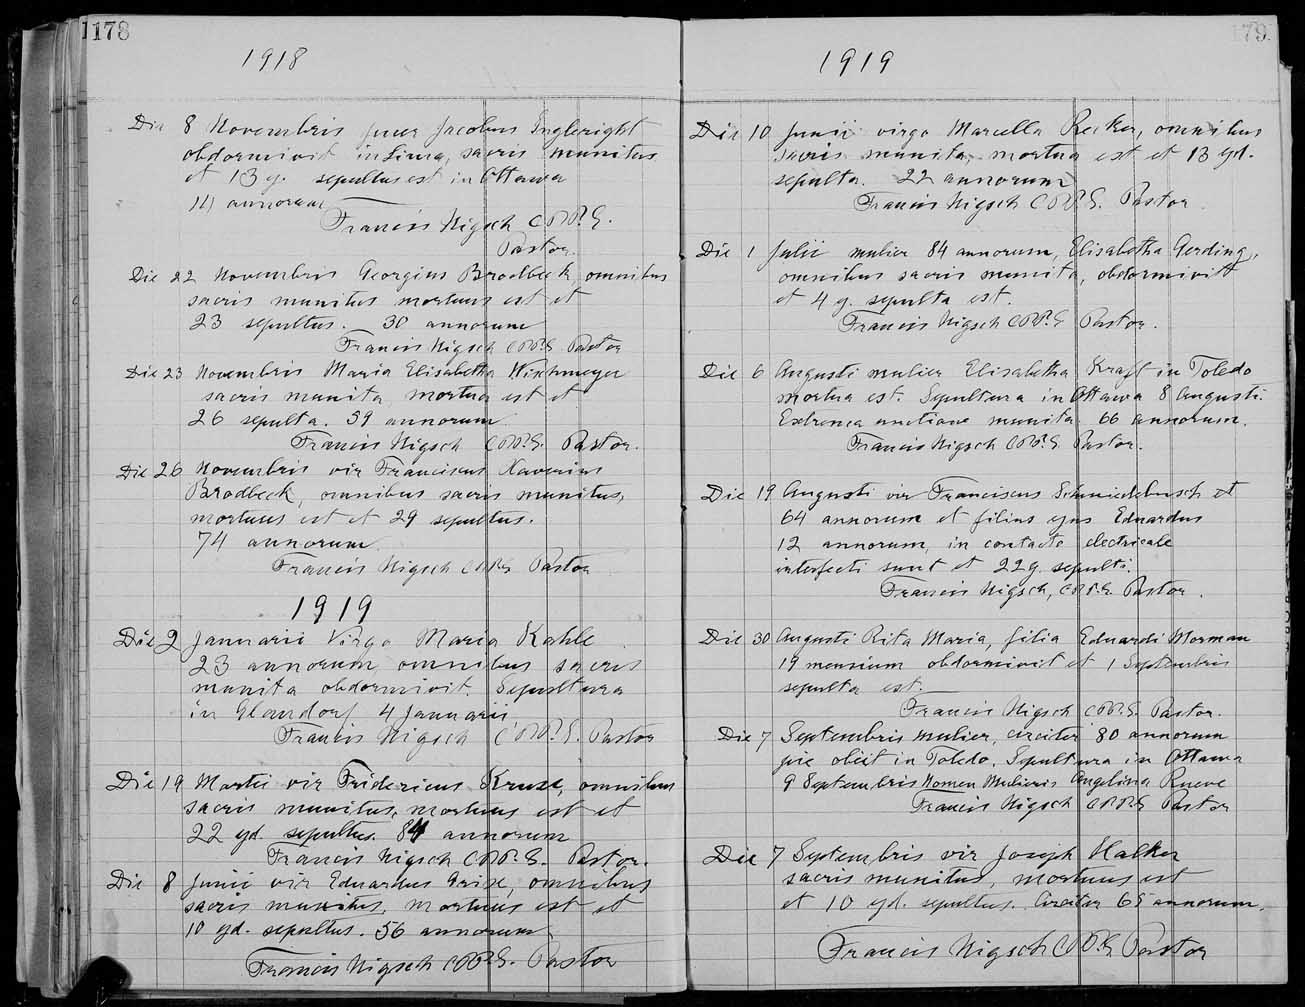 178
1918
Die 8 Novembris puer Jacobus Ingleright
obdormivit in Lima, sacris munitus
et 13 ej. sepultus est in Ottawa
14 annorum
Francis Nigsch C.PP.S.
Pastor.
Die 22 Novembris Georgius Brodbeck, omnibus
sacris munitus mortuus est et
23 sepultus. 30 annorum
Francis Nigsch C.PP.S. Pastor
Die 23 Novembris Maria Elisabetha Wischmeyer
sacris munita, mortua est et
26 sepulta. 59 annorum
Francis Nigsch C.PP.S. Pastor.
Die 26 Novembris vir Franciscus Xaverius
Brodbeck, omnibus sacris munitus,
mortuus est et 29 sepultus.
74 annorum
Francis Nigsch C.PP.S. Pastor
1919
Die 2 Januarii Virgo Maria Kahle
23 annorum omnibus sacris
munita obdormivit. Sepultura
in Glandorf 4 Januarii.
Francis Nigsch C.PP.S. Pastor
Die 19 Martii vir Fridericus Kruse, omnibus
sacris munitus, mortuus est et
22 ejd. sepultus. 84 annorum
Francis Nigsch C.PP.S. Pastor.
Die 8 Junii vir Eduardus Grise, omnibus
sacris munitus, mortuus est et
10 ejd. sepultus. 56 annorum
Francis Nigsch C.PP.S. Pastor
179
1919
Die 10 Junii virgo Marcella Recker, omnibus
sacris munita, mortua est et 13 ejd.
sepulta. 22 annorum
Francis Nigsch C.PP.S. Pastor
Die 1 Julii mulier 84 annorum, Elisabetha Gerding,
omnibus sacris munita, obdormivit
et 4 ej. sepulta est.
Francis Nigsch C.PP.S Pastor.
Die 6 Augusti mulier Elisabetha Kraft in Toledo
mortua est. Sepultura in Ottawa 8 Augusti.
Extrema unctione munita. 66 annorum.
Francis Nigsch C.PP.S Pastor.
Die 19 Augusti vir Franciscus Schmiedebusch et
64 annorum et filius ejus Eduardus
12 annorum, in contacto electricale
interfecti sunt et 22 ej. sepulti.
Francis Nigsch, C.PP.S. Pastor.
Die 30 Augusti Rita Maria, filia Eduardi Morman
19 mensium obdormivit et 1 Septembris
sepulta est.
Francis Nigsch C.PP.S. Pastor.
Die 7 Septembris mulier, circiter 80 annorum
pie obiit in Toledo. Sepultura in Ottawa
9 Septembris Nomen Mulieris Angelina Rueve
Francis Nigsch C.PP.S Pastor
Die 7 Septembris vir Joseph Halker
sacris munitus, mortuus est
et 10 ejd. sepultus. Circiter 65 annorum.
Francis Nigsch C.PP.S Pastor